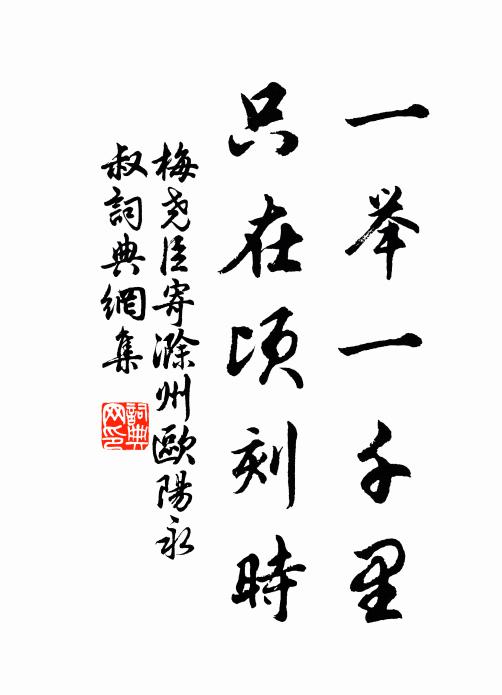 一举一千里
只在顷刻時
梅尧臣寄滁州歐陽永
叔詞典網集
詞典
网印